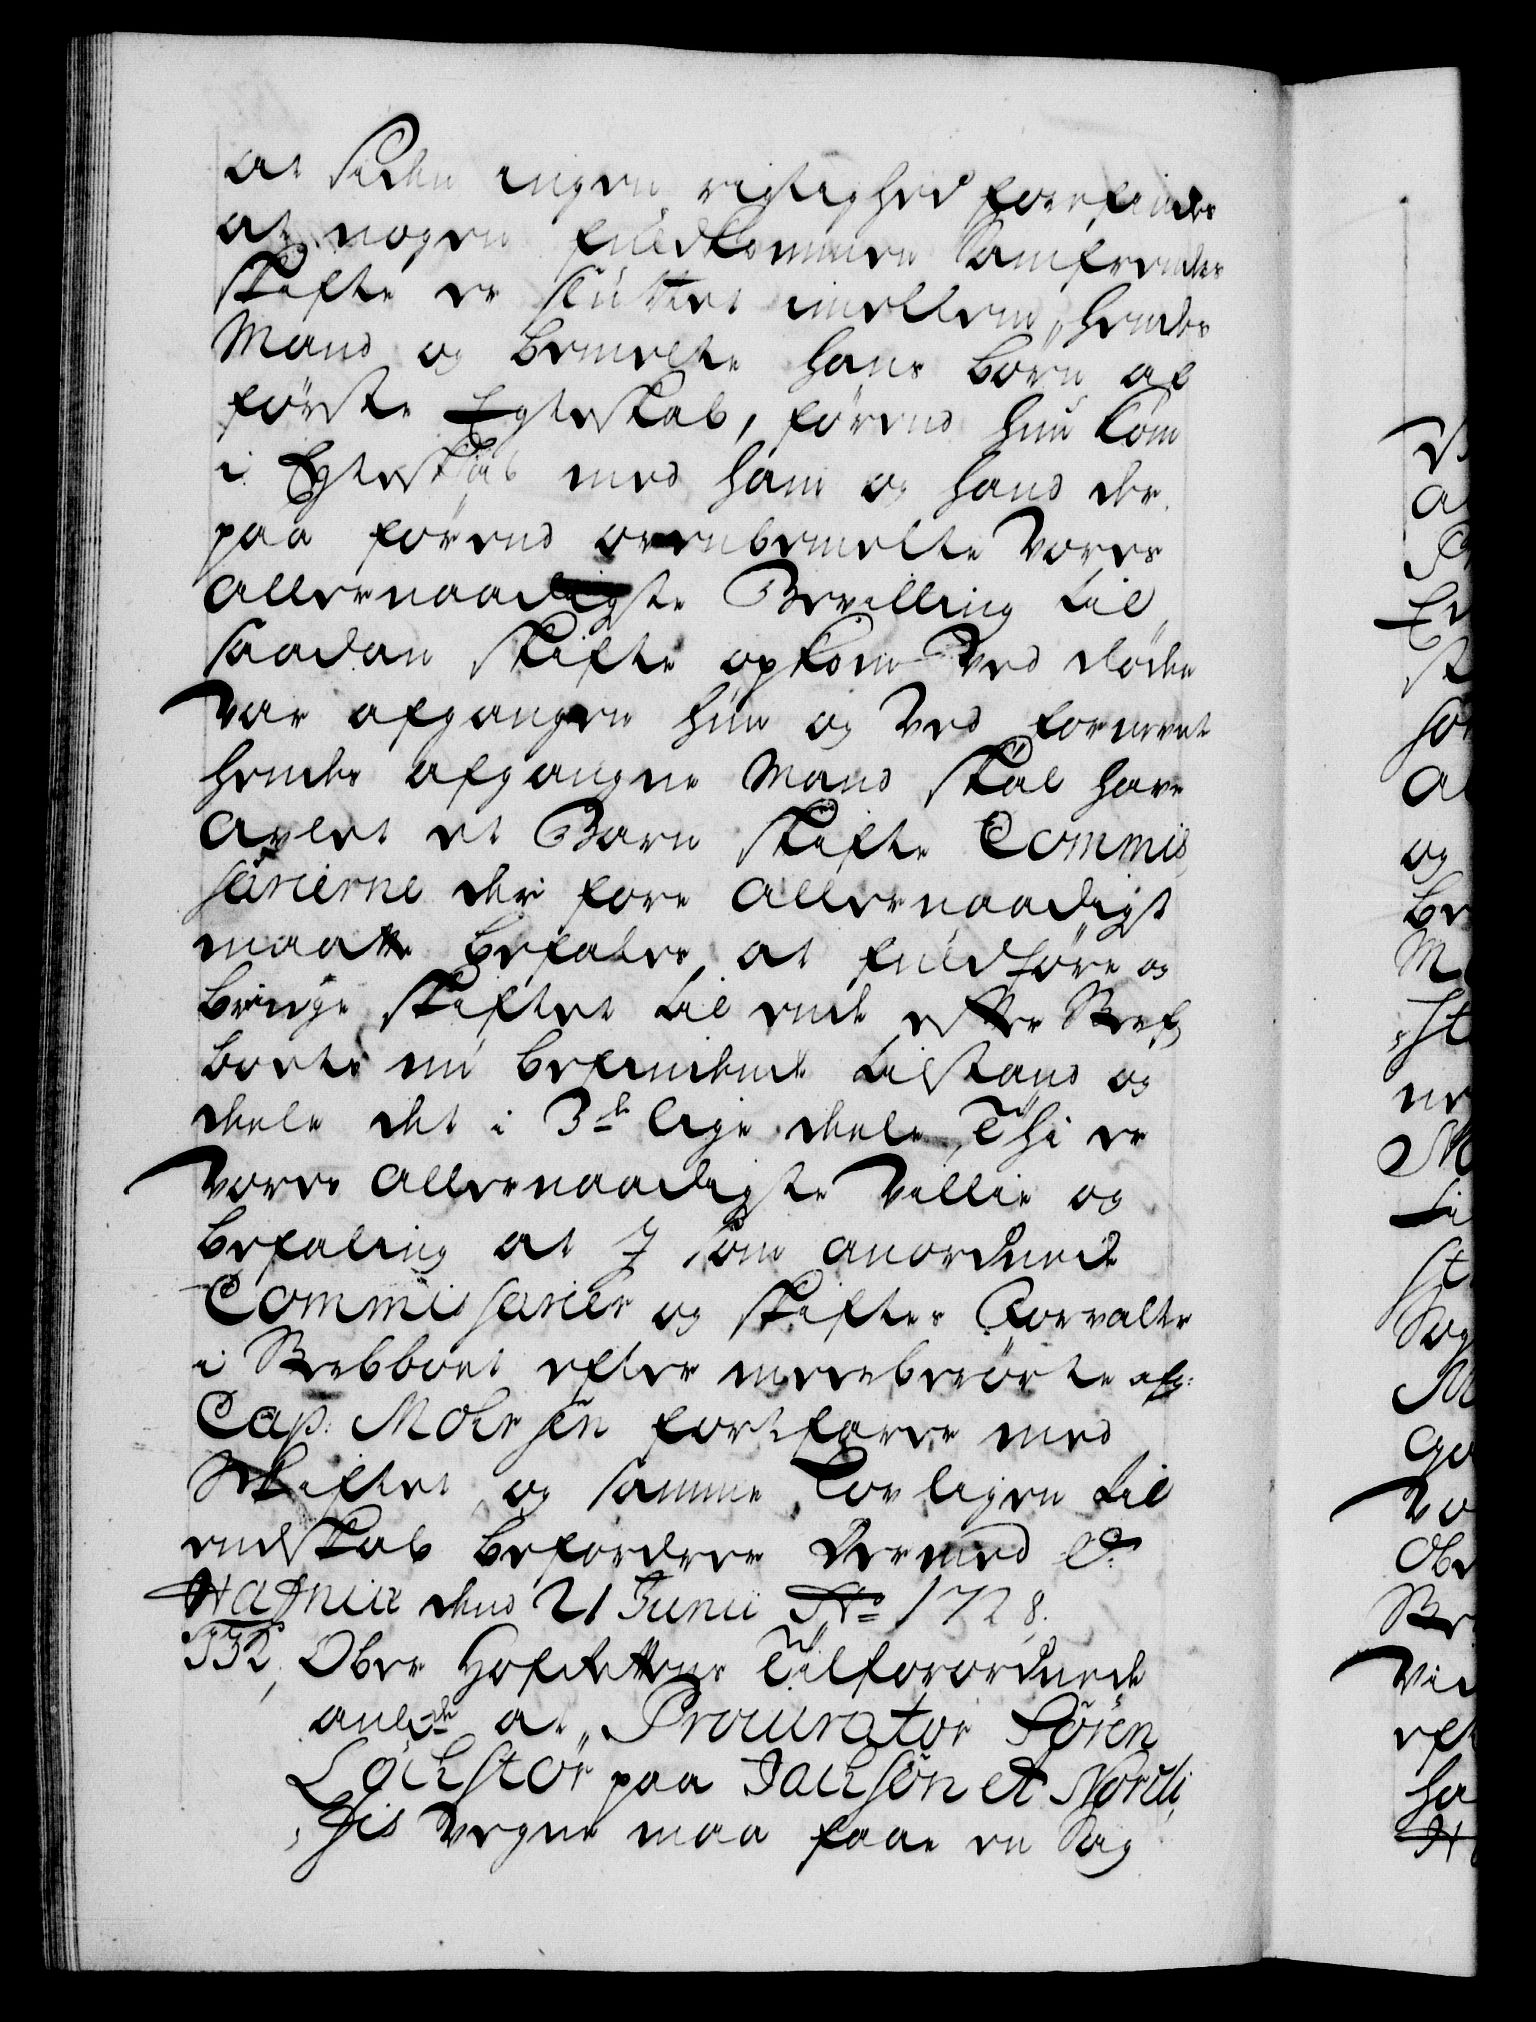 at siden ingen rigtighed forefindes
at nogen fuldkommen Samfrender
skifte er sluttet imellem hendes
Mand og bemelte hans börn af
förste Egteskab, förend hun kom
i Egteskab med ham og hand der
paa förend ovenbemelte Vores
allernaadigste Bevilling til
saadan skifte opkom Ved döden
var afgangen hun og Ved formeent
hendes afgangne Mand skal have
avlet et Barn skifte Commis
sarierne der fore allernaadigst
maatte befales, at fuldföre og
bringe skiftet til ende efter Sterf
boets nu befindende tilstand og
deele det i 3de lige deele, Thi er
vores allernaadigste Villie og
befaling at I som anordnede
Commissarier og skiftes Forvalter
i Sterbboet efter meerberörte afg:
Cap: Mohrsen fortfarer med
Skiftet og samme Lovligen til
endskab befordrer Dermed &
Hafniæ dend 21 Junii Ao 1728.
332, Ober Hofrettens Tilforordnede
anlde at Procurator Sören
Löchstör paa Jachson et
sis Vegne maa faae en Sag